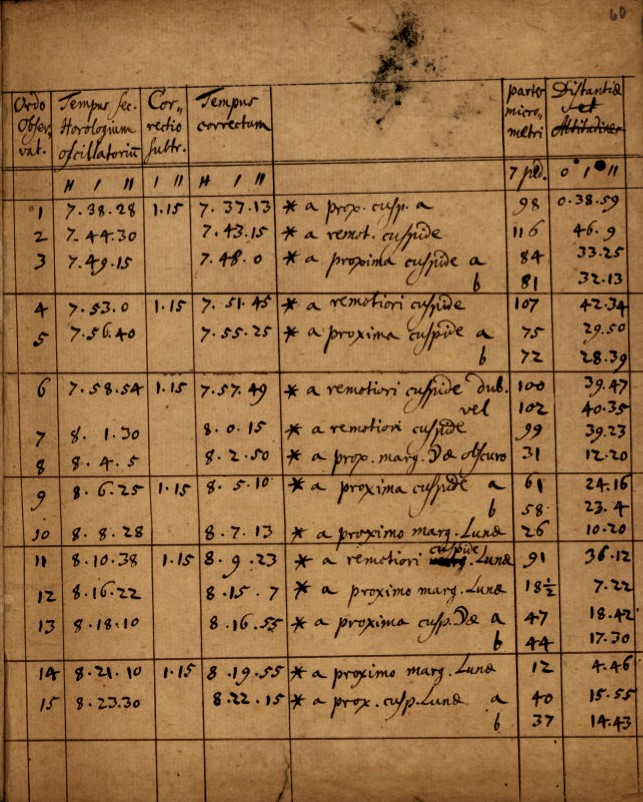 60
Ordo Obser, vat. | Tempus sec. Horologium oscillatoriū | Cor,, rectio subtr. | Tempus correctum | partes micro, metri | Distantiæ
H I II | I II | H I II | 7 ped. | 0 I II
1 7.38.28 1.15 7.37.13 * a prox. cusp. a 98 0.38.59
2 7.44.30 7.43.15 * a remot. cuspide 116 46.9
3 7.49.15 7.48.0 * a proxima cuspide a 84 33.25
b 81 32.13
4 7.53.0 1.15 7.51.45 * a remotiori cuspide 107 42.34
5 7.56.40 7.55.25 * a proxima cuspide a 75 29.50
b 72 28.39
6 7.58.54 1.15 7.57.49 * a remotiori cuspide dub. 100 39.47
vel 102 40.35
7 8.1.30 8.0.15 * a remotiori cuspide 99 39.23
8 8.4.5 8.2.50 * a prox. marg. ☽æ obscuro 31 12.20
9 8.6.25 1.15 8.5.10 * a proxima cuspide a 61 24.16
b 58 23.4
10 8.8.28 8.7.13 * a proximo marg. Lunæ 26 10.20
11 8.10.38 1.15 8.9.23 * a remotiori cuspide Lunæ 91 36.12
12 8.16.22 8.15.7 * a proximo marg. Lunæ 18½ 7.22
13 8.18.10 8.16.55 * a proxima cusp. ☽æ a 47 18.42
b 44 17.30
14 8.21.10 1.15 8.19.55 * a proximo marg. Lunæ 12 4.46
15 8.23.30 8.22.15 * a prox. cusp. Lunæ a 40 15.55
b 37 14.43